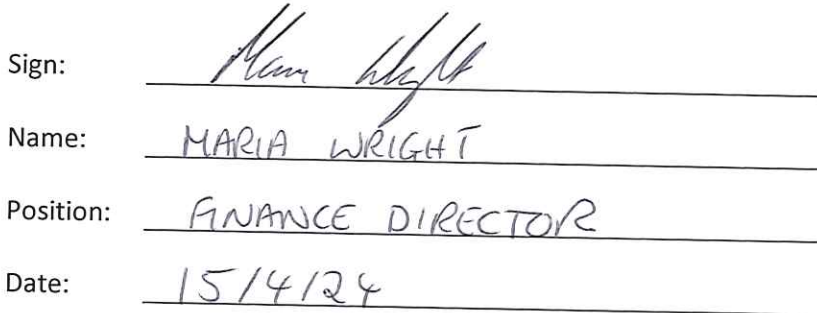 Sign: Maria Wright
Name: MARIA WRIGHT
Position: FINANCE DIRECTOR
Date: 15/4/24